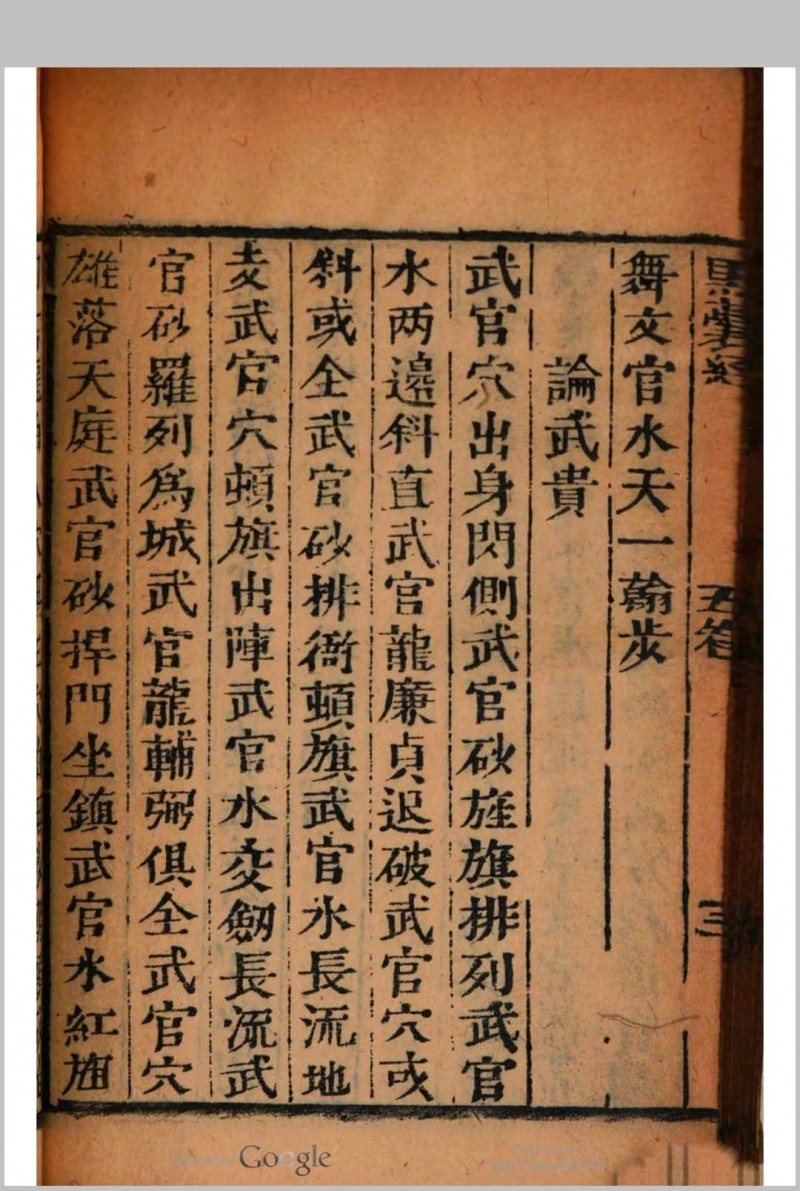 黑囊經 五卷 三
舞文官水天一翰步
論武貴
武官穴出身閃側武官砂旌旗排列武官
水两邉斜直武官龍廉貞迟破武官穴或
斜或全武官砂排衙頓旗武官水長流地
武官穴頓旗出陣武官水交劒長流武
官砂羅列爲城武官龍輔弼俱全武官穴
雄落天庭武官砂捍門坐鎮武官水紅
Google